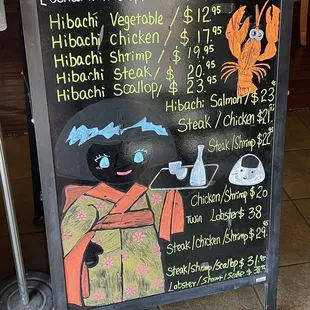 Hibachi Vegetable / $12.95
Hibachi Chicken / $17.95
Hibachi Shrimp / $19.95
Hibachi Steak / $20.95
Hibachi Scallop / $23.95
Hibachi Salmon / $23
Steak / Chicken $21
Steak / Shrimp $22
Chicken / Shrimp $20
Twin Lobster $38
Steak / Chicken / Shrimp $29
Steak / Shrimp / Scallop $31.95
Lobster / Shrimp / Scallop $38